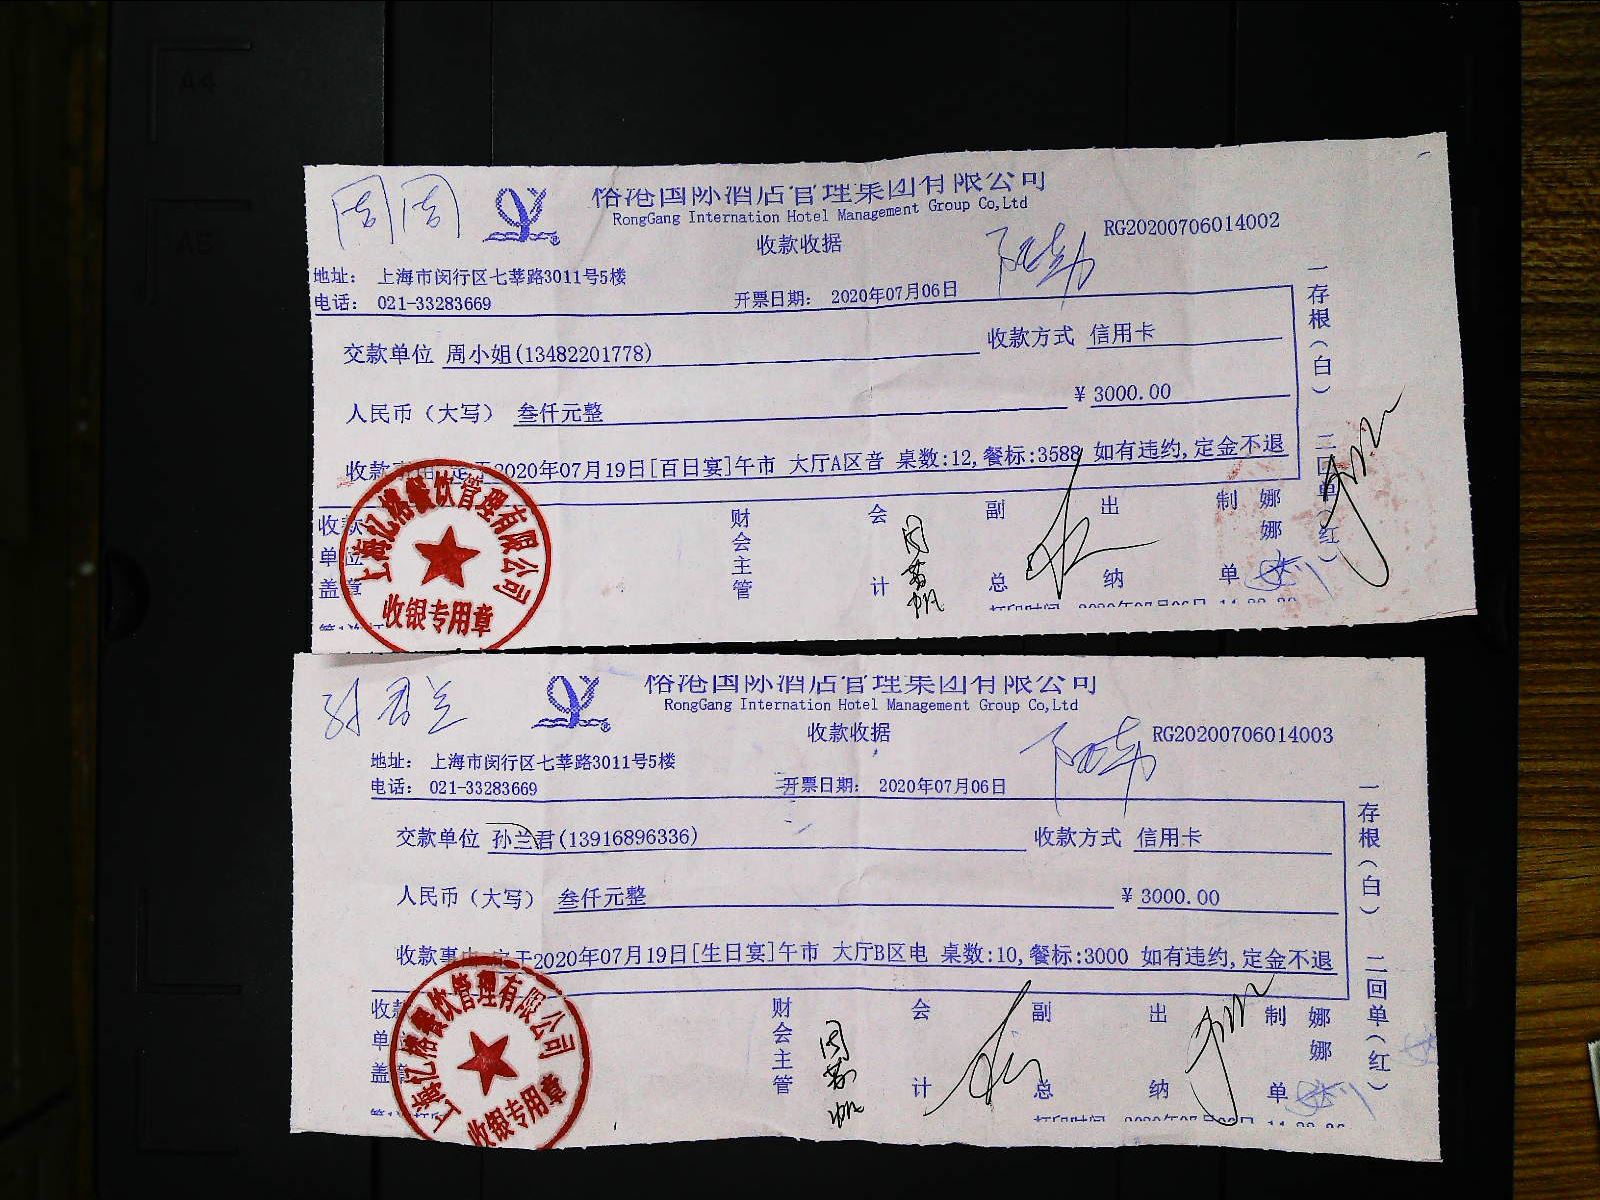 A4
A5
周周
榕港国际酒店管理集团有限公司
RongGang Internation Hotel Management Group Co,Ltd
收款收据
RG20200706014002
地址： 上海市闵行区七莘路3011号5楼
电话： 021-33283669
开票日期： 2020年07月06日
交款单位 周小姐(13482201778)
收款方式 信用卡
人民币（大写） 叁仟元整
¥ 3000.00
收款事由 定于2020年07月19日[百日宴]午市 大厅A区音 桌数:12,餐标:3588 如有违约,定金不退
一存根（白） 二回单（红）
收款单位盖章
财会主管
会计
副总
出纳
制单
娜娜
上海亿榕餐饮管理有限公司
收银专用章
打印时间
孙君兰
榕港国际酒店管理集团有限公司
RongGang Internation Hotel Management Group Co,Ltd
收款收据
RG20200706014003
地址： 上海市闵行区七莘路3011号5楼
电话： 021-33283669
开票日期： 2020年07月06日
交款单位 孙兰君(13916896336)
收款方式 信用卡
人民币（大写） 叁仟元整
¥ 3000.00
收款事由 定于2020年07月19日[生日宴]午市 大厅B区电 桌数:10,餐标:3000 如有违约,定金不退
一存根（白） 二回单（红）
收款单位盖章
财会主管
会计
副总
出纳
制单
娜娜
上海亿榕餐饮管理有限公司
收银专用章
打印时间